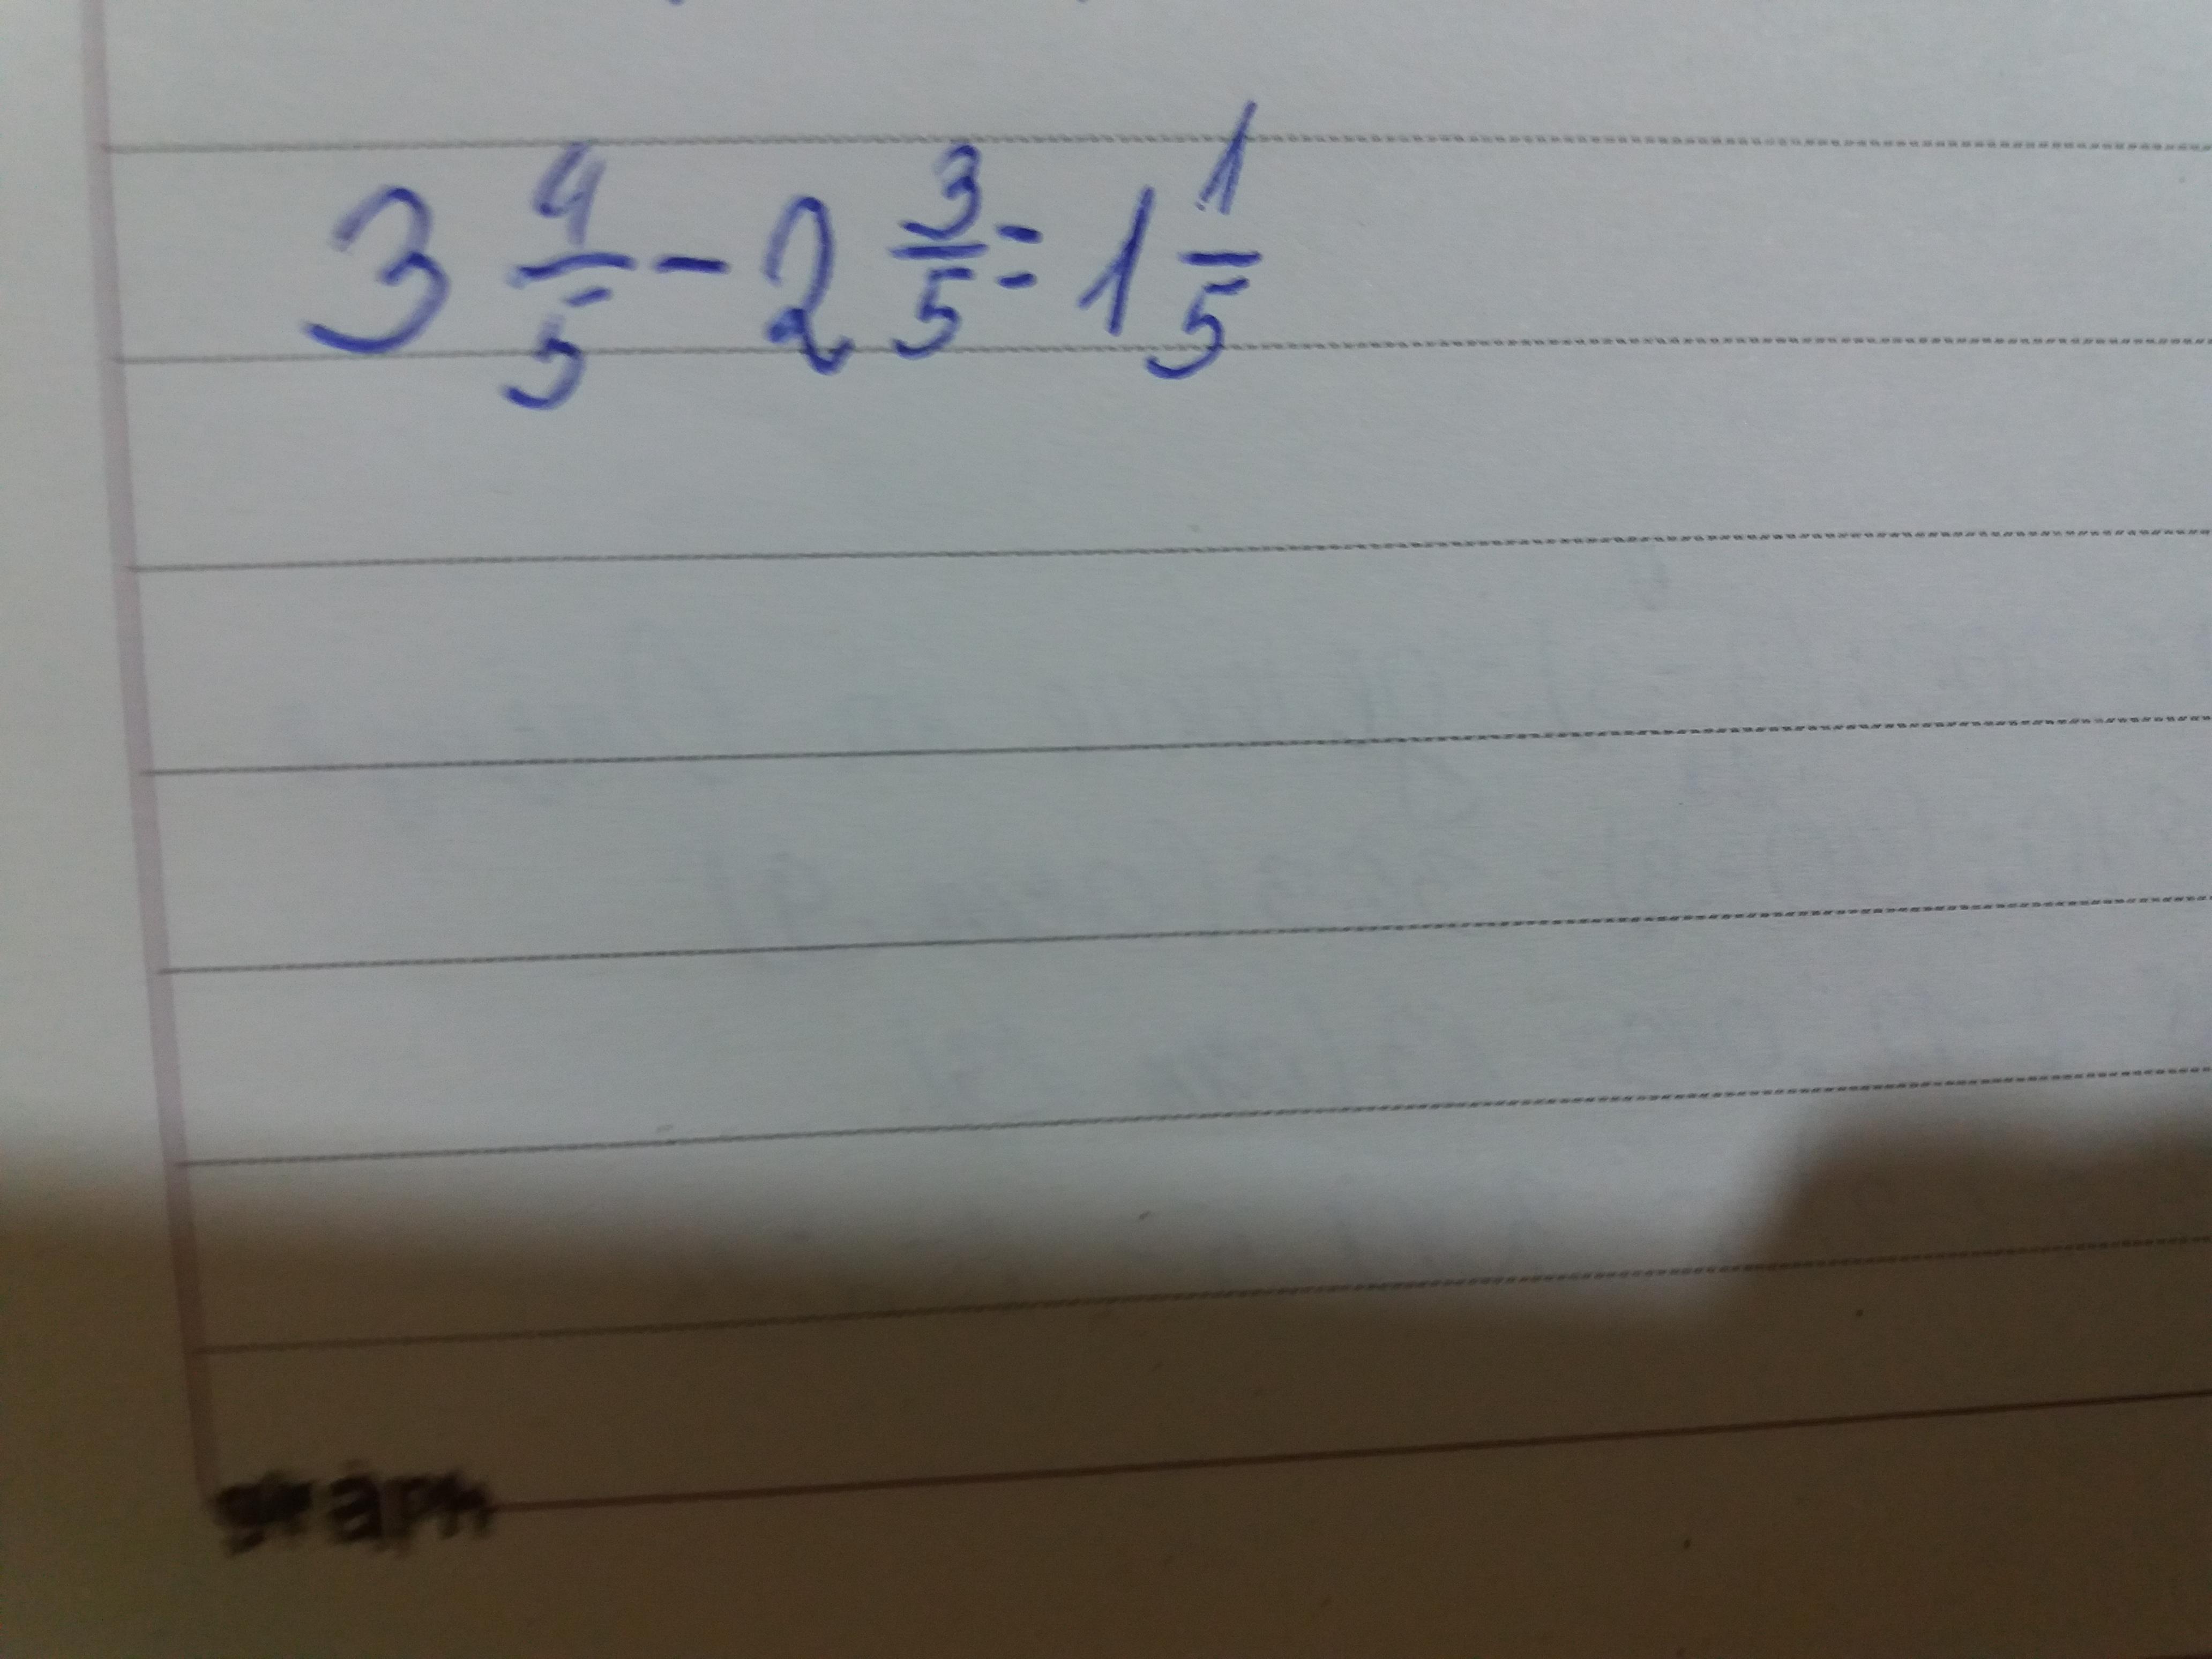 3 4/5 - 2 3/5 = 1 1/5
graph